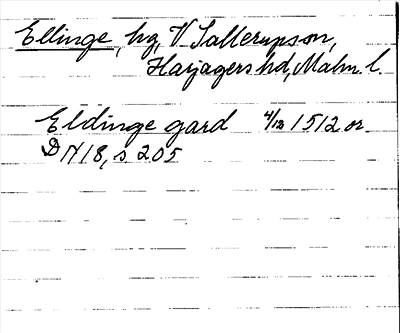 Ellinge, hg, V. Sallerups sn,
Harjagers hd, Malm. l.
Eldinge gard 4/12 1512 or.
DN 18, s. 205